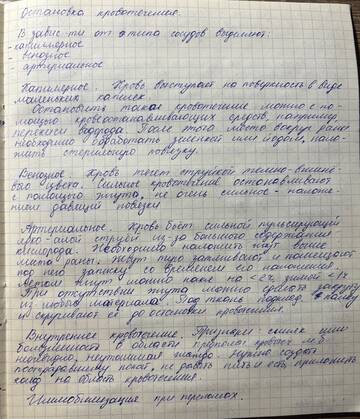 Остановка кровотечения.
В завис-ти от типа сосудов выделяют:
- капиллярное
венозное
артериальное
Капиллярное. Кровь выступает на поверхность в виде
маленьких капелек
Остановить такое кровотечение можно с по-
мощью кровоостанавливающих средств, например,
перекиси водорода. После этого место вокруг раны
необходимо обработать зеленкой или йодом, нало-
жить стерильную повязку.
Венозное. Кровь течет струйкой темно-вишне-
вого цвета. Сильное кровотечение останавливают
с помощью жгута, не очень сильное - наложе-
нием давящей повязки
Артериальное. Кровь бьет сильной пульсирующей
ярко-алой струей из-за большого содержания
кислорода. Необходимо наложить жгут выше
места раны. Жгут туго затягивают и помещают
под него записку со временем его наложения.
Летом жгут можно накл. на <2ч, зимой <1ч
При отсутствии жгута можно сделать закрутку
из любого материала. Под ткань подклад. палку
и скручивают её до остановки кровотечения.
Внутреннее кровотечение. Признаки: синюш. или
болезненность в области
неутолимая жажда. Нужно создать
пострадавшему покой, не давать пить и есть, приложить
холод на область кровотечения.
Иммобилизация при переломах.